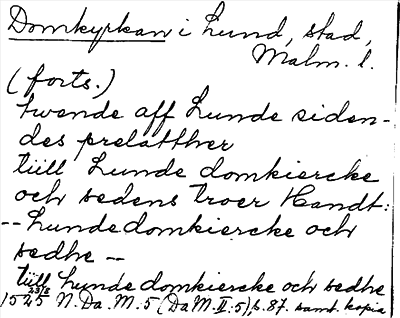 Domkyrkan i Lund, stad,
Malm. l.
(forts.)
twende aff Lunde siden-
des prelatther
tiill Lunde domkiercke
och sedens troer Handt:
-- Lunde domkiercke och
sedhe --
tiill Lunde domkiercke och sedhe
1525 23/6 N. Da. M. 5 (Da M. II: 5), s. 87. samt. kopia